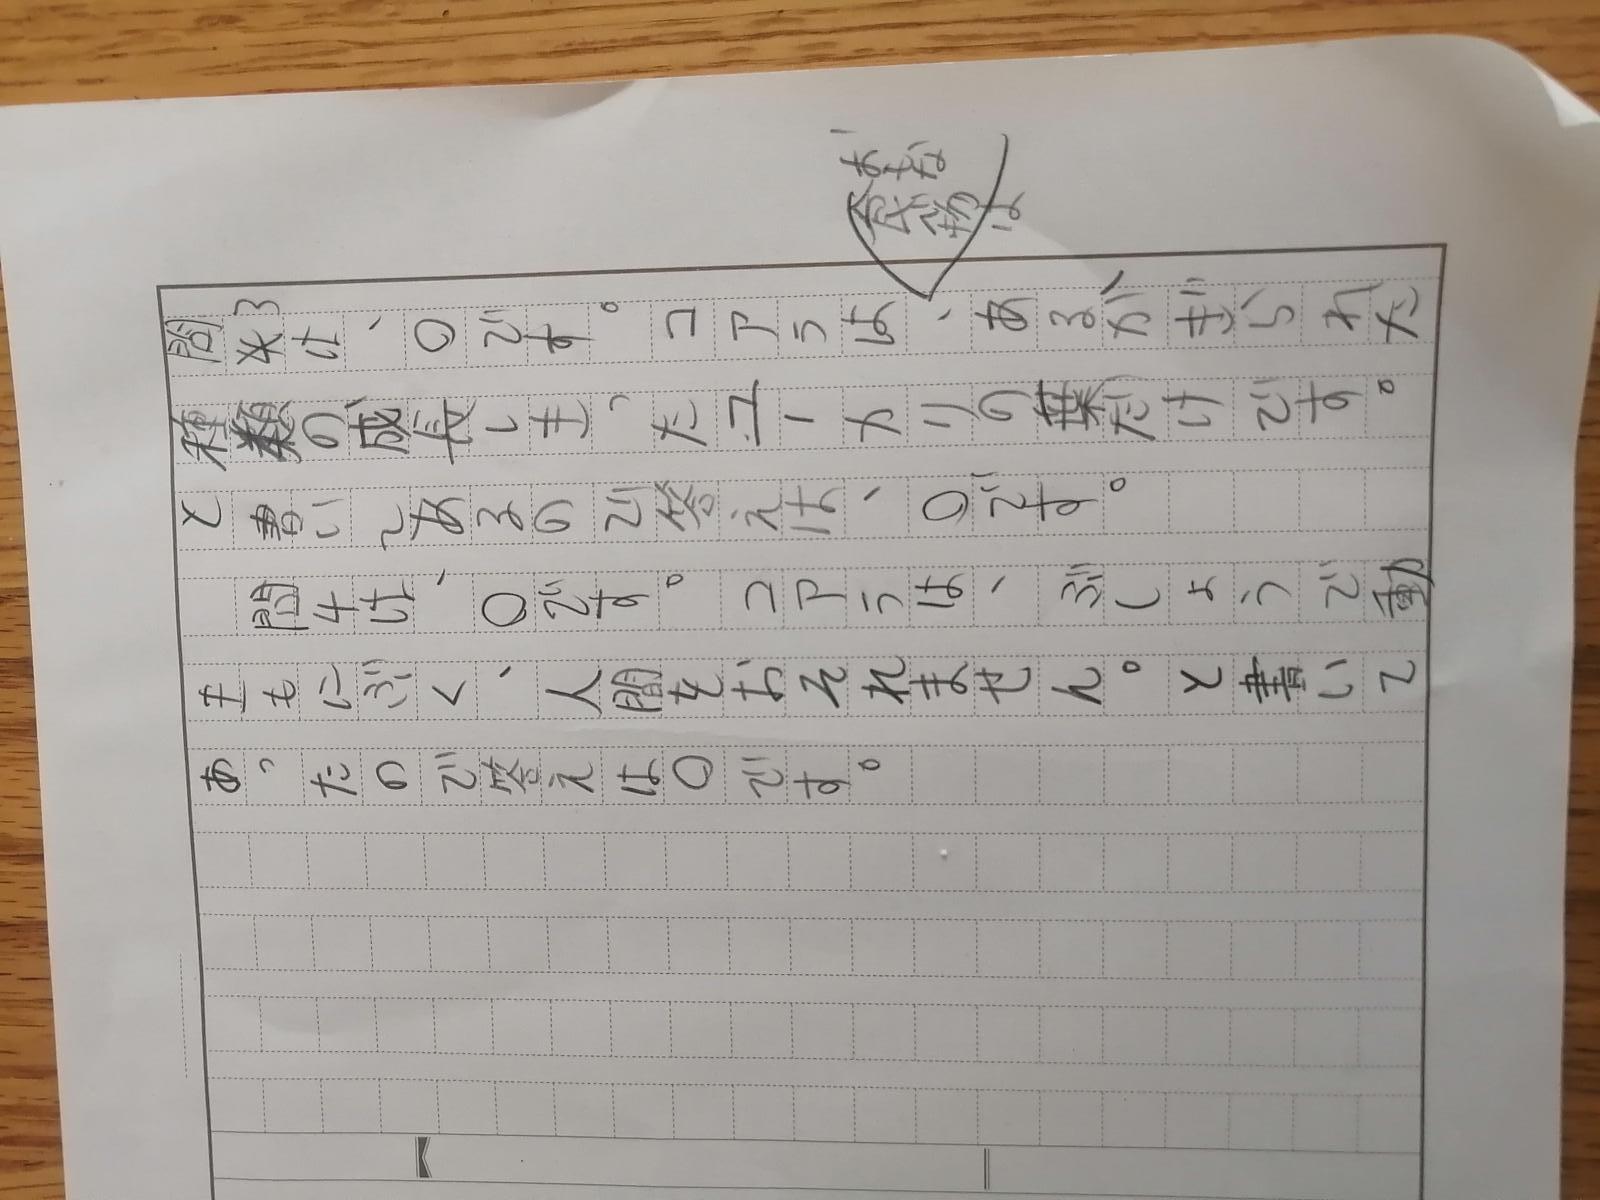 おもな
食べ物
は
問3は、〇です。コアラは、あるかぎられた
種類の成長しきったユーカリの葉だけです。
と書いてあるので答えは、〇です。
問4は、〇です。コアラは、ぶしょうで動
きもにぶく、人間をおそれません。と書いて
あったので答えは〇です。